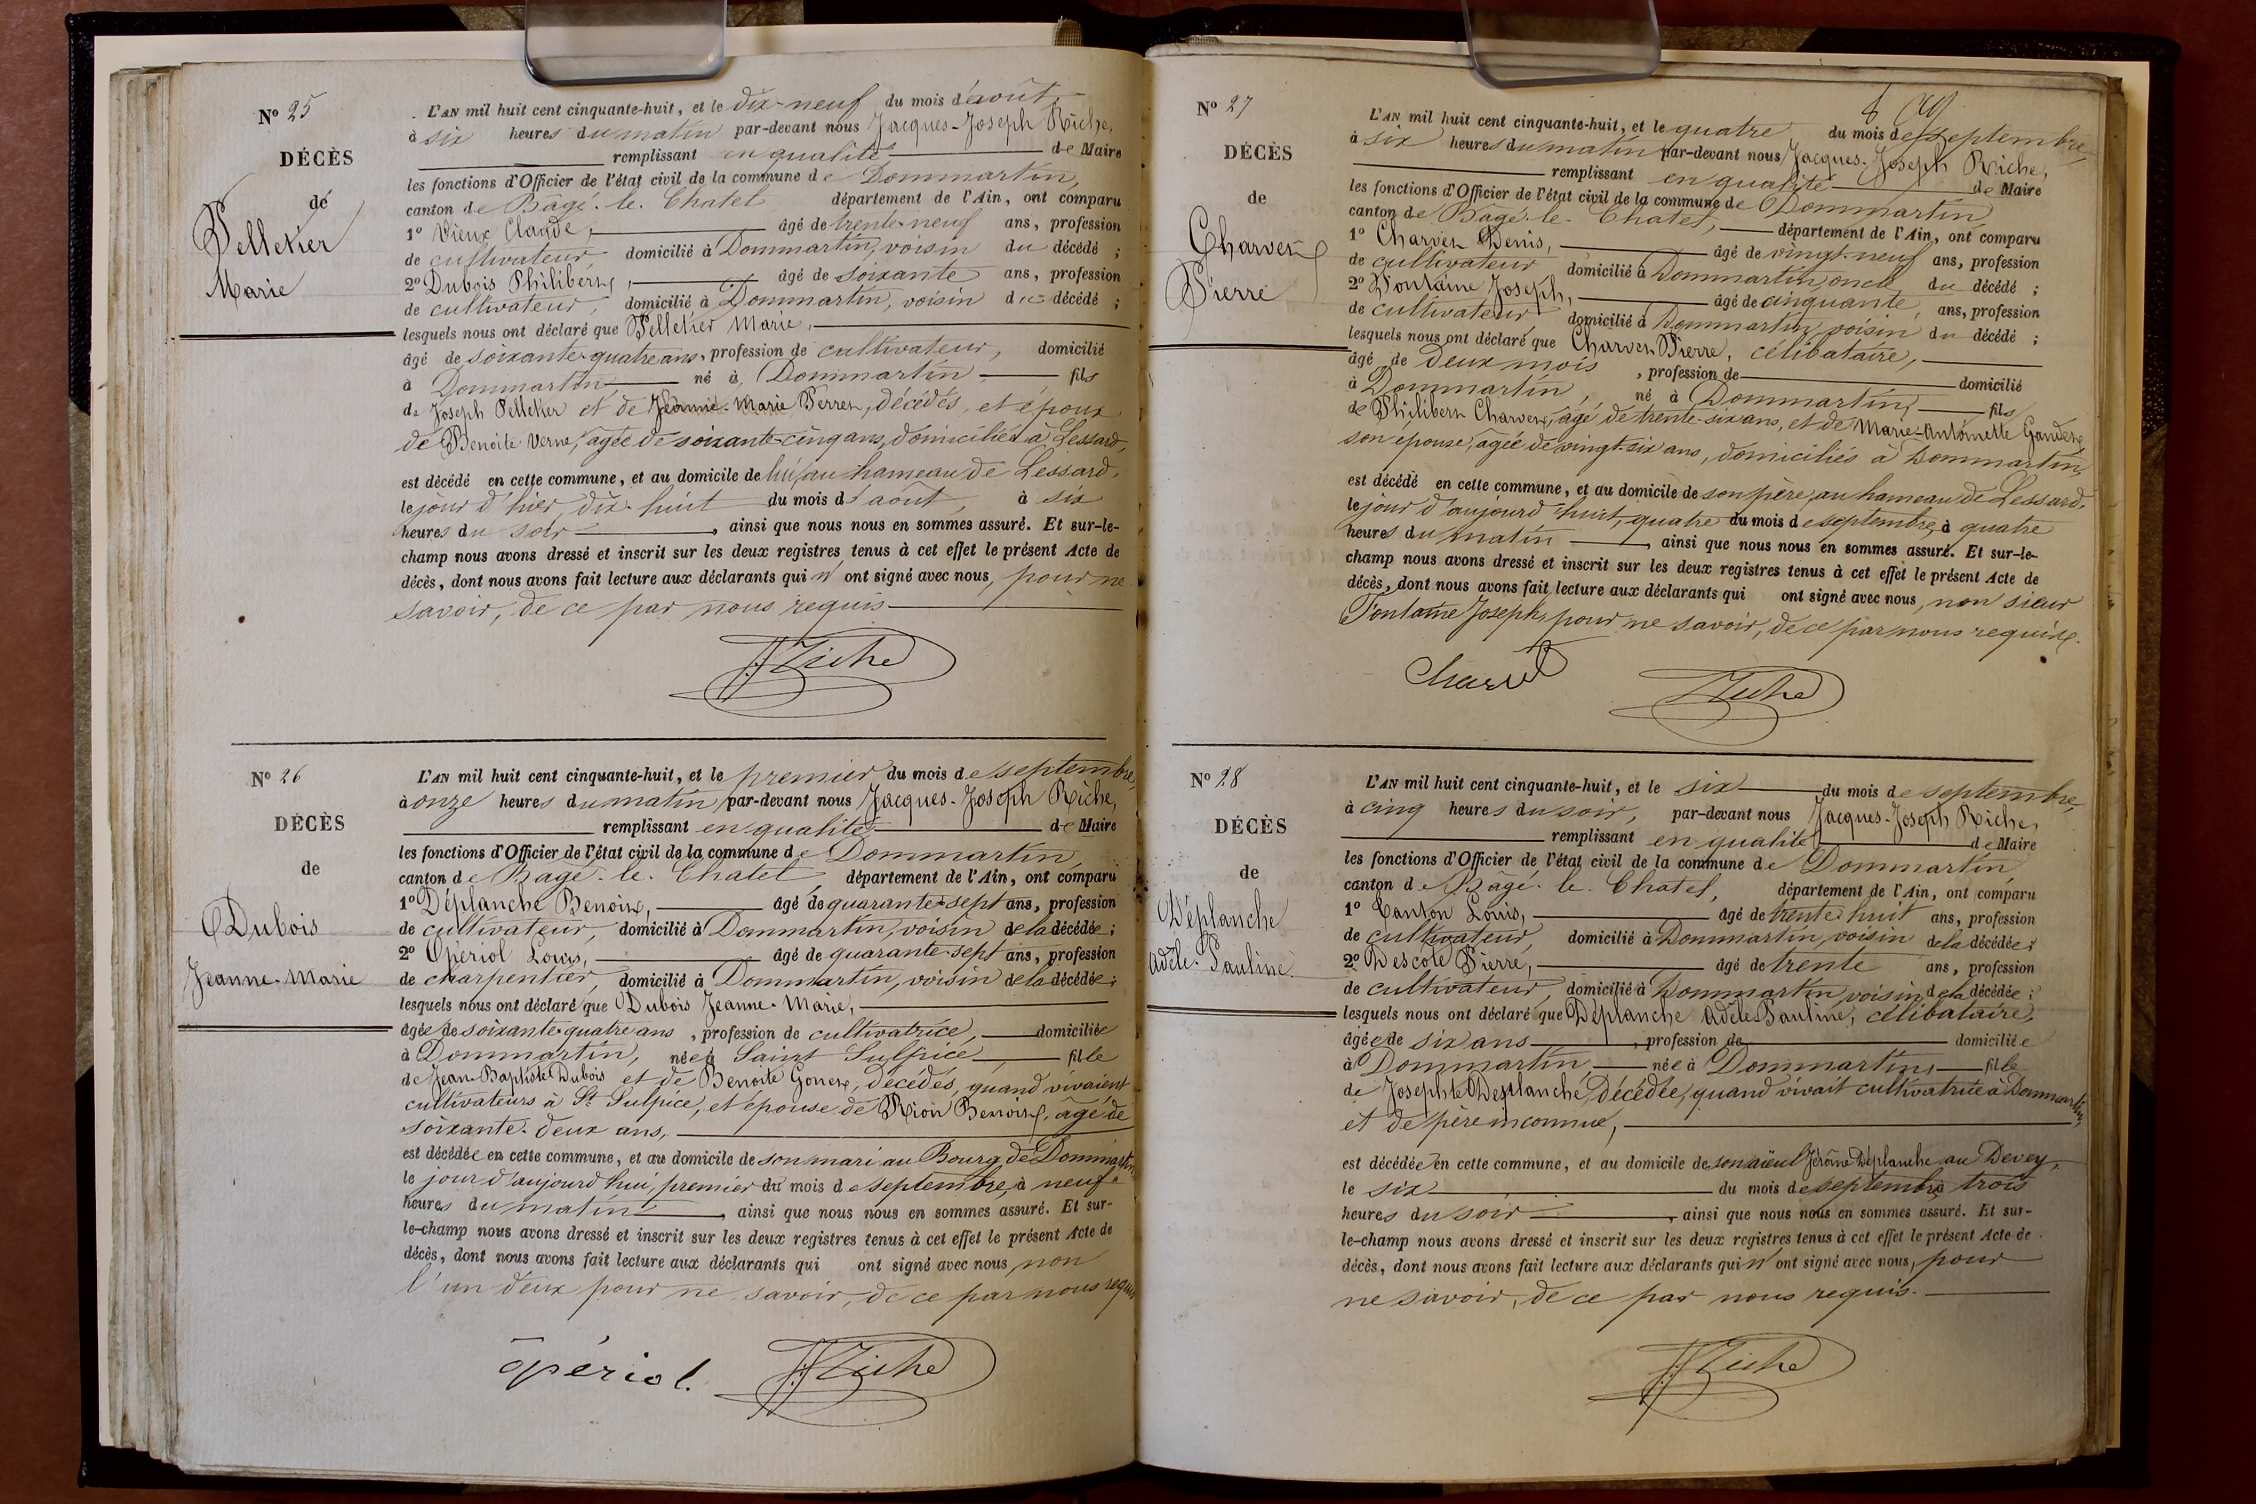 Nº 25
DÉCÈS
de
Pelletier
Marie
L'AN mil huit cent cinquante-huit, et le dix-neuf du mois d'août,
à six heures du matin par-devant nous Jacques-Joseph Riche,
remplissant en qualité de Maire
les fonctions d'Officier de l'état civil de la commune de Dommartin,
canton de Bâgé-le-Chatel département de l'Ain, ont comparu
1º Vieux Claude, âgé de trente-neuf ans, profession
de cultivateur domicilié à Dommartin, voisin du décédé ;
2º Dubois Philibert, âgé de soixante ans, profession
de cultivateur, domicilié à Dommartin, voisin du décédé ;
lesquels nous ont déclaré que Pelletier Marie,
âgé de soixante-quatre ans, profession de cultivateur, domicilié
à Dommartin né à Dommartin fils
de Joseph Pelletier et de Jeanne-Marie Perret, décédés, et époux
de Benoite Verne, âgée de soixante-cinq ans, domiciliée à Lessard,
est décédé en cette commune, et au domicile de lui, au hameau de Lessard,
le jour d'hier, dix-huit du mois d'août, à six
heures du soir, ainsi que nous nous en sommes assuré. Et sur-le-
champ nous avons dressé et inscrit sur les deux registres tenus à cet effet le présent Acte de
décès, dont nous avons fait lecture aux déclarants qui n'ont signé avec nous, pour ne
savoir, de ce par nous requis
J. Riche
Nº 26
DÉCÈS
de
Dubois
Jeanne-Marie
L'AN mil huit cent cinquante-huit, et le premier du mois de septembre,
à onze heures du matin, par-devant nous Jacques-Joseph Riche,
remplissant en qualité de Maire
les fonctions d'Officier de l'état civil de la commune de Dommartin,
canton de Bâgé-le-Chatel, département de l'Ain, ont comparu
1º Déplanche Benoit, âgé de quarante-sept ans, profession
de cultivateur, domicilié à Dommartin, voisin de la décédée ;
2º Opériol Louis, âgé de quarante-sept ans, profession
de charpentier, domicilié à Dommartin, voisin de la décédée ;
lesquels nous ont déclaré que Dubois Jeanne-Marie,
âgée de soixante-quatre ans, profession de cultivatrice, domiciliée
à Dommartin, née à Saint Sulpice, fille
de Jean-Baptiste Dubois et de Benoite Gonet, décédés, quand vivaient
cultivateurs à St Sulpice, et épouse de Rion Benoit, âgé de
soixante-deux ans,
est décédée en cette commune, et au domicile de son mari au Bourg de Dommartin
le jour d'aujourd'hui, premier du mois de septembre, à neuf
heures du matin, ainsi que nous nous en sommes assuré. Et sur-
le-champ nous avons dressé et inscrit sur les deux registres tenus à cet effet le présent Acte de
décès, dont nous avons fait lecture aux déclarants qui ont signé avec nous non
l'un d'eux pour ne savoir, de ce par nous requis
opériol.
J. Riche
Nº 27
DÉCÈS
de
Charvet
Pierre
L'AN mil huit cent cinquante-huit, et le quatre du mois de septembre,
à six heures du matin par-devant nous Jacques-Joseph Riche,
remplissant en qualité de Maire
les fonctions d'Officier de l'état civil de la commune de Dommartin
canton de Bâgé-le-Chatel, département de l'Ain, ont comparu
1º Charvet Denis, âgé de vingt-neuf ans, profession
de cultivateur domicilié à Dommartin, oncle du décédé ;
2º Fontaine Joseph, âgé de cinquante ans, profession
de cultivateur domicilié à Dommartin, voisin du décédé ;
lesquels nous ont déclaré que Charvet Pierre, célibataire,
âgé de deux mois, profession de domicilié
à Dommartin, né à Dommartin, fils
de Philibert Charvet, âgé de trente-six ans, et de Marie-Antoinette Gaudet,
son épouse, âgée de vingt-six ans, domiciliés à Dommartin,
est décédé en cette commune, et au domicile de son père, au hameau de Lessard,
le jour d'aujourd'hui, quatre du mois de septembre, à quatre
heures du matin, ainsi que nous nous en sommes assuré. Et sur-le-
champ nous avons dressé et inscrit sur les deux registres tenus à cet effet le présent Acte de
décès, dont nous avons fait lecture aux déclarants qui ont signé avec nous, non sieur
Fontaine Joseph, pour ne savoir, de ce par nous requis.
Charvet
J. Riche
Nº 28
DÉCÈS
de
Déplanche
Adèle-Pauline
L'AN mil huit cent cinquante-huit, et le six du mois de septembre,
à cinq heures du soir, par-devant nous Jacques-Joseph Riche,
remplissant en qualité de Maire
les fonctions d'Officier de l'état civil de la commune de Dommartin,
canton de Bâgé-le-Chatel, département de l'Ain, ont comparu
1º Canton Louis, âgé de trente-huit ans, profession
de cultivateur, domicilié à Dommartin, voisin de la décédée ;
2º Descote Pierre, âgé de trente ans, profession
de cultivateur, domicilié à Dommartin, voisin de la décédée ;
lesquels nous ont déclaré que Déplanche Adèle-Pauline, célibataire,
âgée de six ans, profession de domiciliée
à Dommartin, née à Dommartin, fille
de Josephte Déplanche, décédée, quand vivait cultivatrice à Dommartin,
et de père inconnu,
est décédée en cette commune, et au domicile de son aïeul Jérôme Déplanche au Devey,
le six du mois de septembre à trois
heures du soir, ainsi que nous nous en sommes assuré. Et sur-
le-champ nous avons dressé et inscrit sur les deux registres tenus à cet effet le présent Acte de
décès, dont nous avons fait lecture aux déclarants qui n'ont signé avec nous, pour
ne savoir, de ce par nous requis.
J. Riche